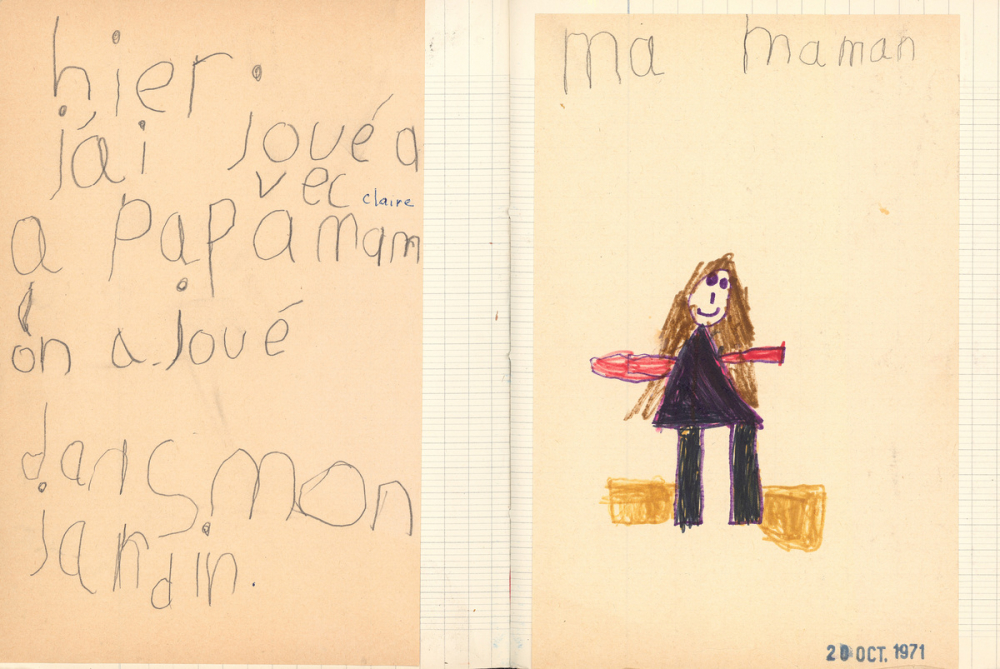 hier.
j'ai joué a
vec
claire
a papamam
on a joué
dans mon
jardin.
ma maman
20 OCT. 1971